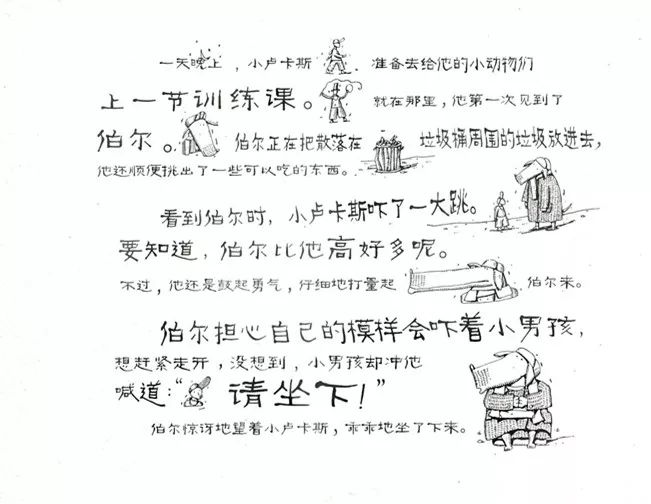 一天晚上，小卢卡斯准备去给他的小动物们
上一节训练课。就在那里，他第一次见到了
伯尔。伯尔正在把散落在垃圾桶周围的垃圾放进去，
他还顺便挑出了一些可以吃的东西。
看到伯尔时，小卢卡斯吓了一大跳。
要知道，伯尔比他高好多呢。
不过，他还是鼓起勇气，仔细地打量起伯尔来。
伯尔担心自己的模样会吓着小男孩，
想赶紧走开，没想到，小男孩却冲他
喊道：“请坐下！”
伯尔惊讶地望着小卢卡斯，乖乖地坐了下来。